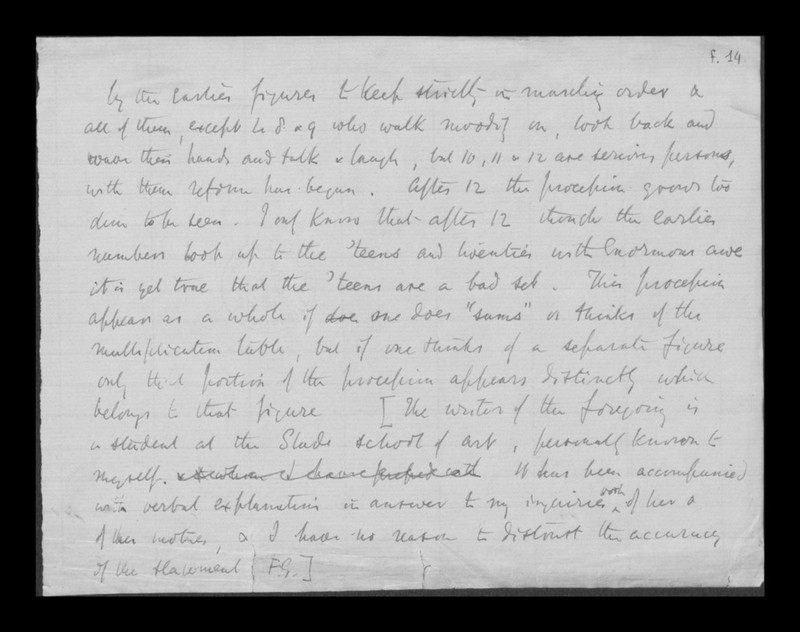 f. 14
by the earlier figures to keep strictly in marching order &
all of them, except to 8 & 9 who walk moodily on, look back and
wave their hands and talk & laugh, but 10, 11 & 12 are serious persons,
with them reform has begun. After 12 the procession grows too
dim to be seen. I only know that after 12 though the earlier
numbers look up to the 'teens and twenties with enormous awe
it is yet true that the 'teens are a bad set. This procession
appears as a whole if does one does "sums" or thinks of the
multiplication table, but if one thinks of a separate figure
only that portion of the procession appears distinctly which
belongs to that figure [The writer of the foregoing is
a student at the Slade school of art, personally known to
myself. It has been accompanied
with verbal explanations in answer to my inquiries both of her &
of her mother, & I have no reason to distrust the accuracy
of the statement F.G.]